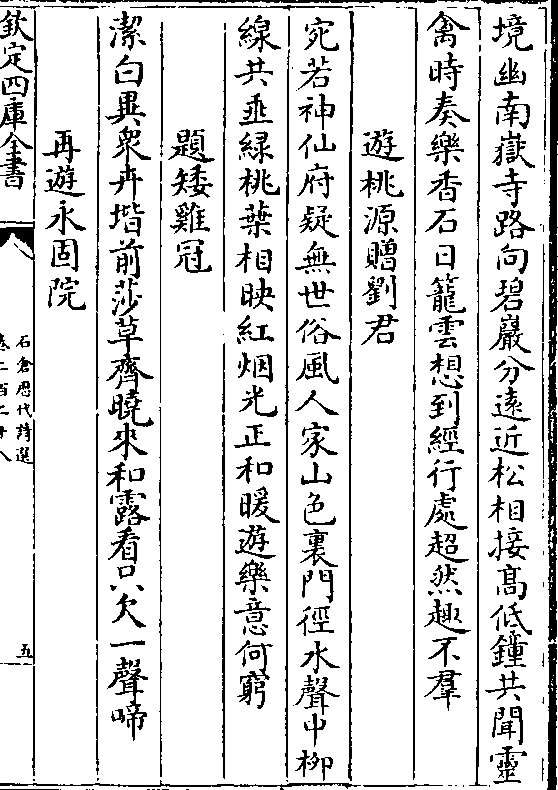 境幽南嶽寺路向碧巖分遠近松相接髙低鐘共聞靈
禽時奏樂香石日籠雲想到經行處超然趣不羣
遊桃源贈劉君
宛若神仙府疑無世俗風人家山色裏門徑水聲中柳
線共垂緑桃葉相映紅烟光正和暖遊樂意何窮
題矮雞冠
潔白異衆卉堦前莎草齊曉來和露看只欠一聲啼
再遊永固院
欽定四庫全書
石倉歴代詩選
五